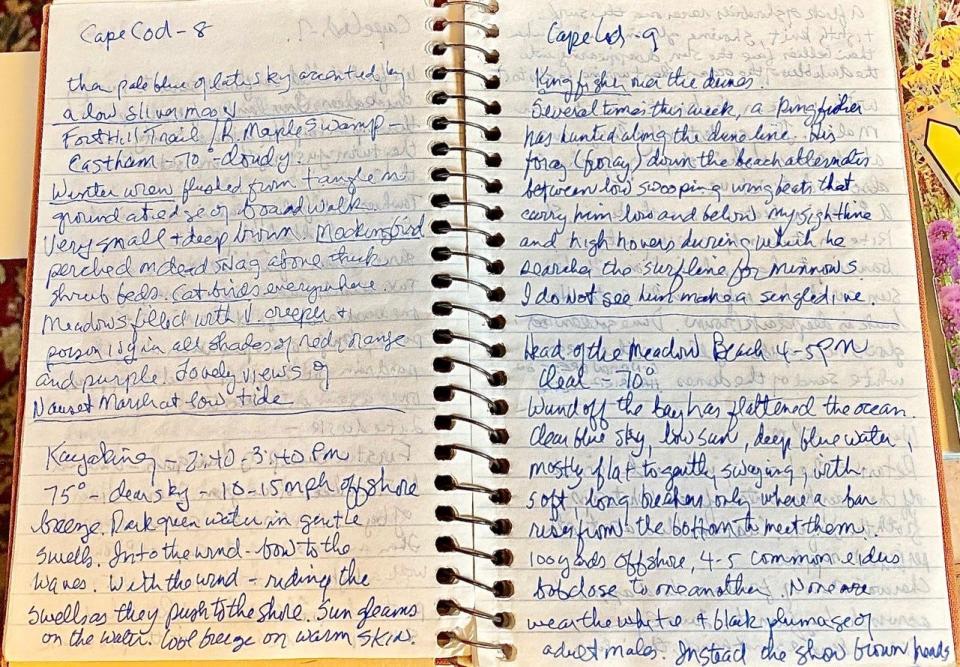 Cape Cod - 8
the pale blue of late sky accented by
a low sliver moon
Fort Hill Trail / R. Maple Swamp -
Eastham - 70° - cloudy.
Winter wren flushed from tangle on
ground at edge of boardwalk.
Very small + deep brown. Mockingbird
perched on dead snag above thick
shrub beds. Catbirds everywhere.
Meadows filled with V. creeper +
poison ivy in all shades of red, orange
and purple. Lovely views of
Nauset Marsh at low tide
Kayaking - 2:40 - 3:40 PM
75° - clear sky - 10-15 mph offshore
breeze. Dark green water in gentle
swells. Into the wind - bow to the
waves. With the wind - riding the
swells as they push to the shore. Sun gleams
on the water. Cool breeze on warm skin.
Cape Cod - 9
Kingfisher over the dunes.
Several times this week, a kingfisher
has hunted along the dune line. His
foray (foray) down the beach alternates
between low swooping wing beats that
carry him low and below my sightline
and high hovers during which he
searches the surfline for minnows.
I do not see him make a single dive
Head of the Meadow Beach 4-5 PM
Clear - 70°
Wind off the bay has flattened the ocean.
Clear blue sky, low sun, deep blue water,
mostly flat to gently swaying, with
soft, long breakers only where a bar
rises from the bottom to meet them.
100 yards offshore, 4-5 common eiders
bob close to one another. None
wear the white + black plumage of
adult males. Instead the show brown heads